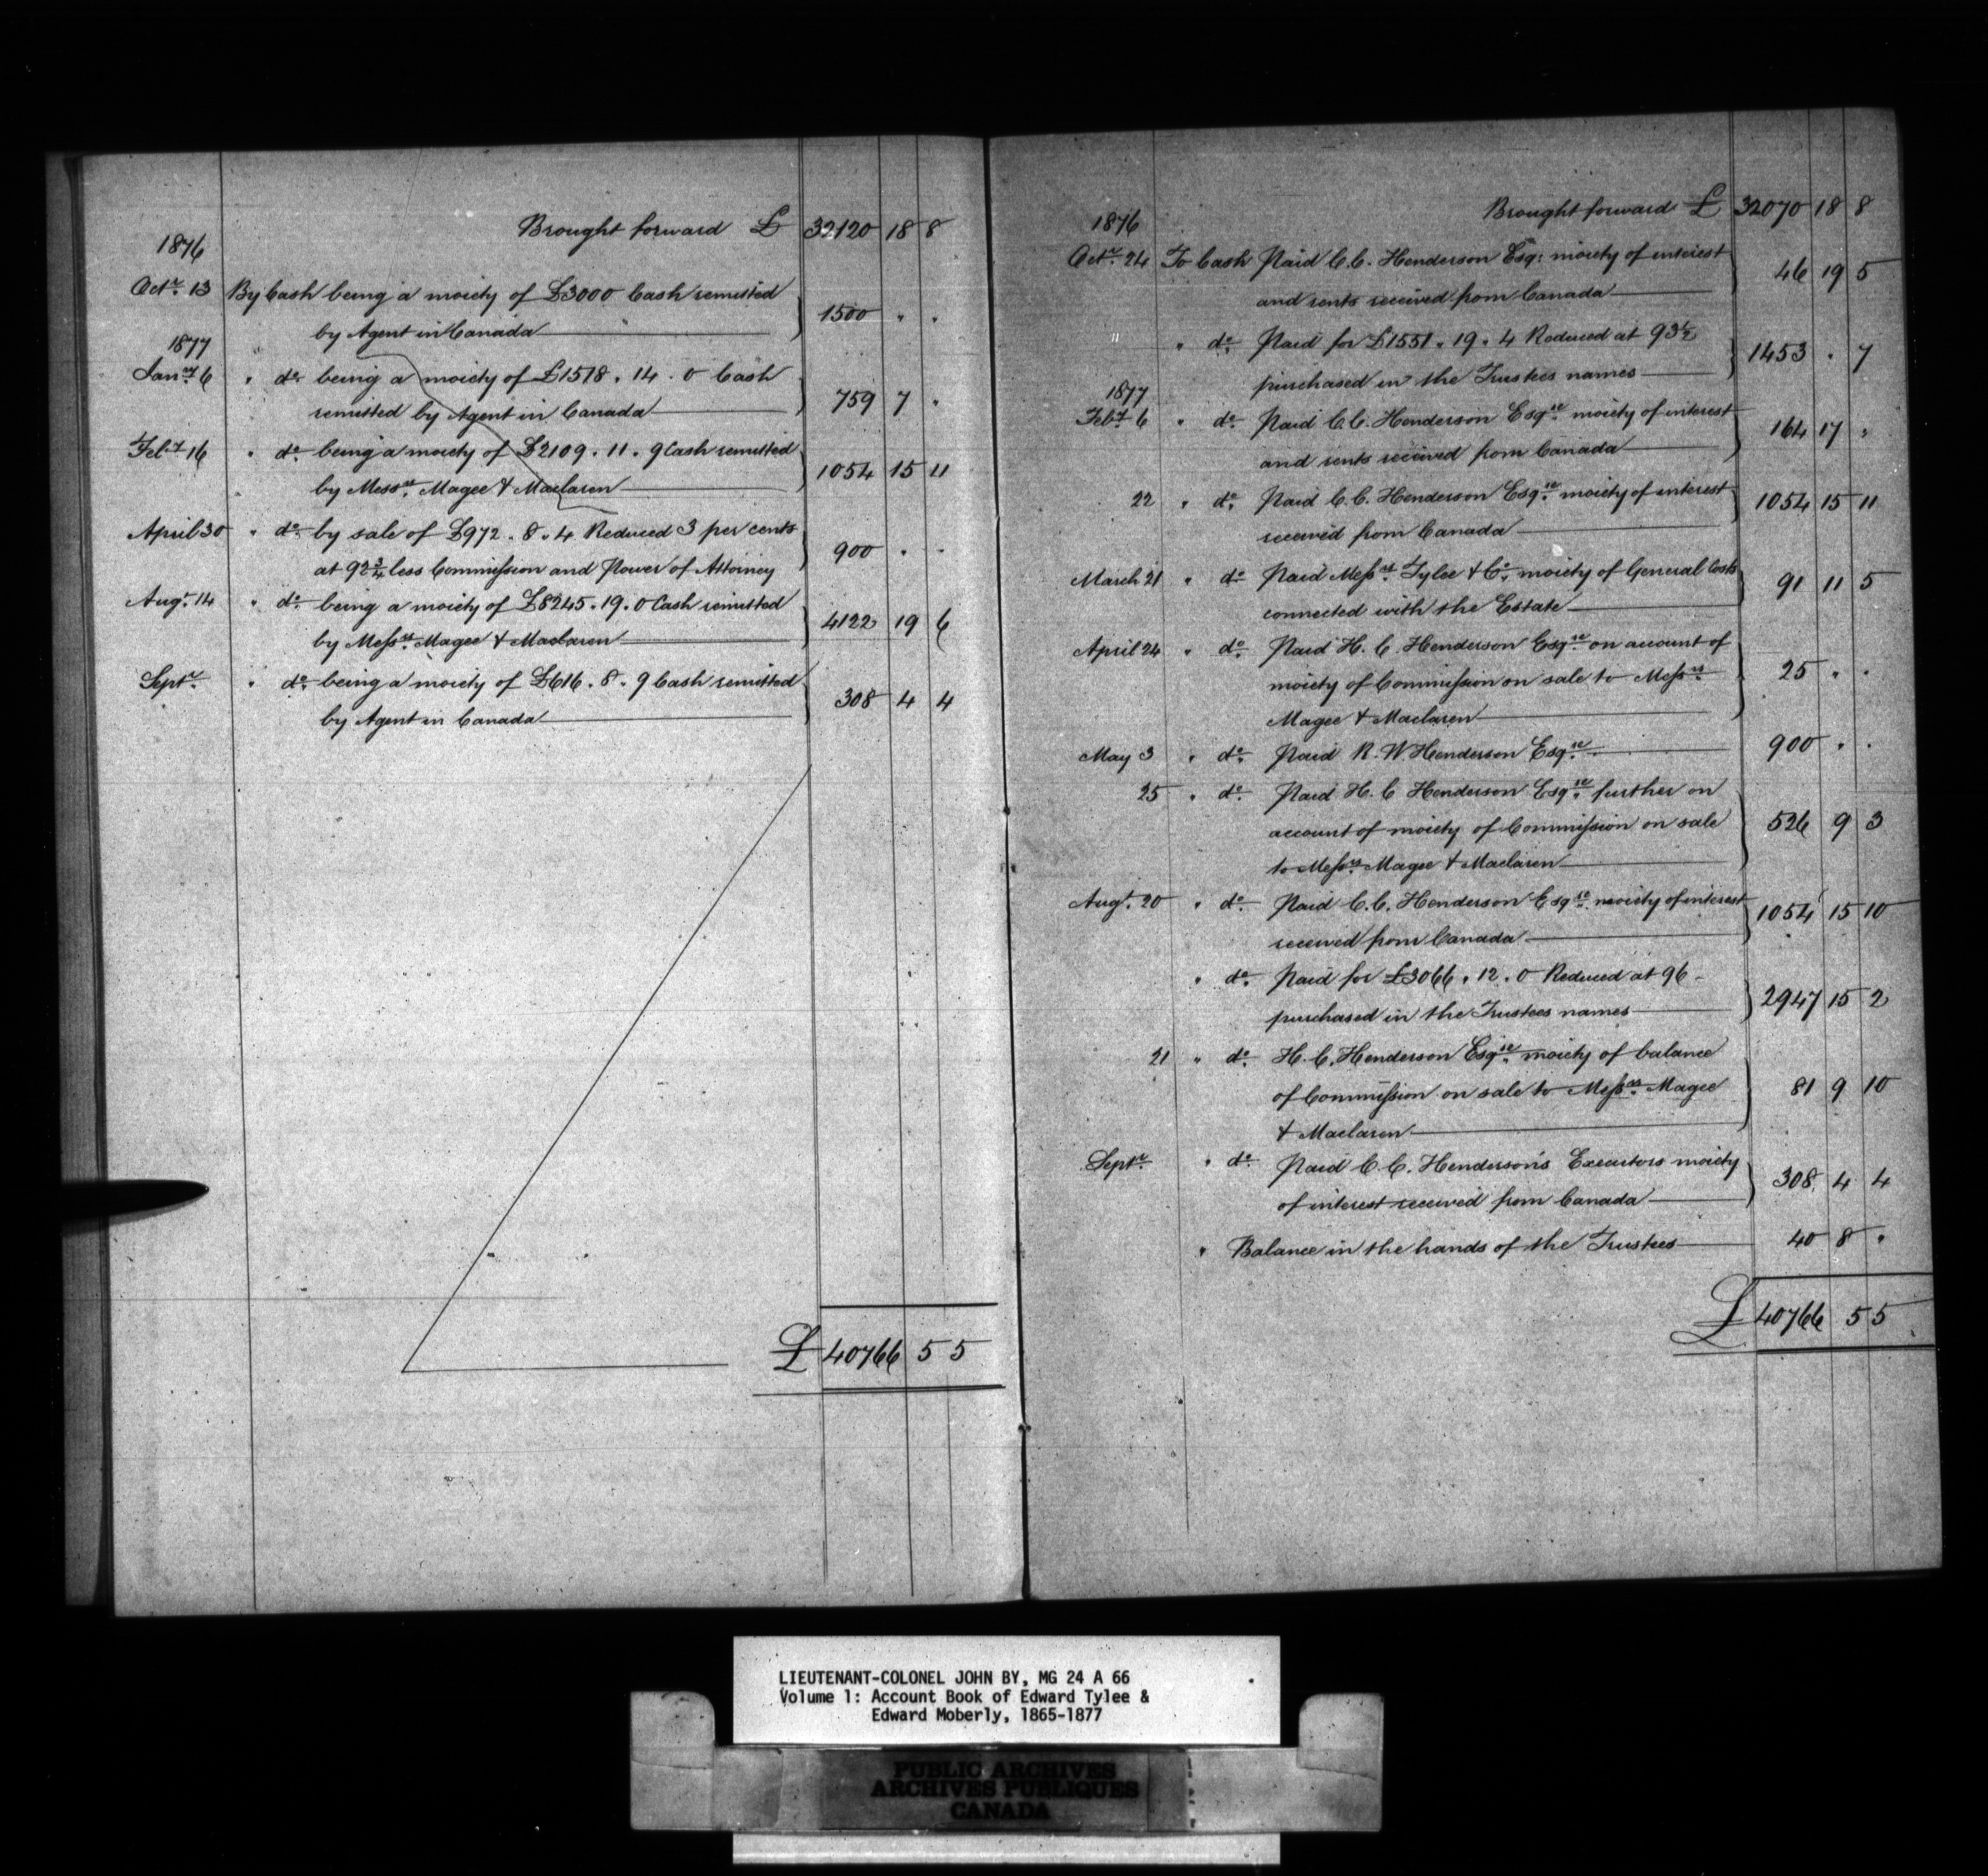 Brought forward £ 32120 18 8
1876
Octr. 13 By Cash being a moiety of £3000 Cash remitted
by Agent in Canada 1500 " "
1877
Jany 6 " do. being a moiety of £1518 . 14 . 0 Cash
remitted by Agent in Canada 759 7 "
Feby 16 " do. being a moiety of £2109 . 11 . 9 Cash remitted
by Messrs. Magee & Maclaren 1054 15 11
April 30 " do. by sale of £972 . 8 . 4 Reduced 3 per cents
at 92¾ less Commission and Power of Attorney 900 " "
Augt. 14 " do. being a moiety of £8245 . 19 . 0 Cash remitted
by Messrs. Magee & Maclaren 4122 19 6
Septr. " do. being a moiety of £616 . 8 . 9 Cash remitted
by Agent in Canada 308 4 4
£ 40766 5 5
Brought forward £ 32070 18 8
1876
Octr. 24 To Cash Paid C. C. Henderson Esq: moiety of interest
and rents received from Canada 46 19 5
" " do. Paid for £1551 . 19 . 4 Reduced at 93½
purchased in the Trustees names 1453 " 7
1877
Feby 6 " do. Paid C. C. Henderson Esqre. moiety of interest
and rents received from Canada 164 17 "
22 " do. Paid C. C. Henderson Esqre. moiety of interest
received from Canada 1054 15 11
March 21 " do. Paid Messrs. Tylee & Co. moiety of General Costs
connected with the Estate 91 11 5
April 24 " do. Paid H. C. Henderson Esqre. on account of
moiety of Commission on sale to Messrs.
Magee & Maclaren 25 " "
May 3 " do. Paid R. W. Henderson Esqre. 900 " "
25 " do. Paid H. C Henderson Esqre. further on
account of moiety of Commission on sale
to Messrs. Magee & Maclaren 526 9 3
Augt. 20 " do. Paid C. C. Henderson Esqre. moiety of interest
received from Canada 1054 15 10
" do. Paid for £3066 . 12 . 0 Reduced at 96
purchased in the Trustees names 2947 15 2
21 " do. H. C. Henderson Esqre. moiety of balance
of Commission on sale to Messrs. Magee
& Maclaren 81 9 10
Septr. " do. Paid C. C. Henderson's Executors moiety
of interest received from Canada 308 4 4
" Balance in the hands of the Trustees 40 8 "
£ 40766 5 5
LIEUTENANT-COLONEL JOHN BY, MG 24 A 66
Volume 1: Account Book of Edward Tylee &
Edward Moberly, 1865-1877
PUBLIC ARCHIVES
ARCHIVES PUBLIQUES
CANADA